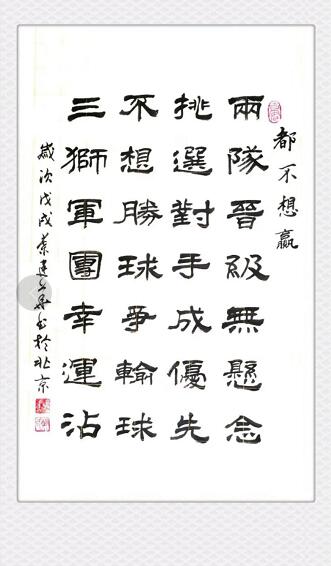 都不想贏
兩隊晉級無懸念
挑選對手成優先
不想勝球爭輸球
三獅軍團幸運沾
歲次戊戌書於北京